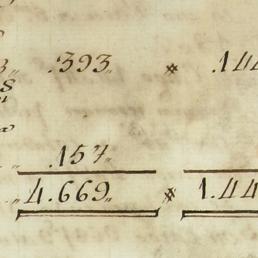 .393,, * .144
.157,,
4.669,, * 1.44